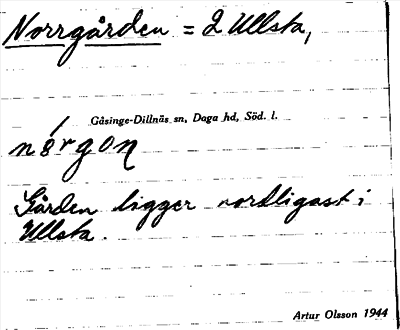 Norrgården = 2 Ullsta,
Gåsinge-Dillnäs sn, Daga hd, Söd. l.
Gården ligger nordligast i
Ullsta.
Artur Olsson 1944